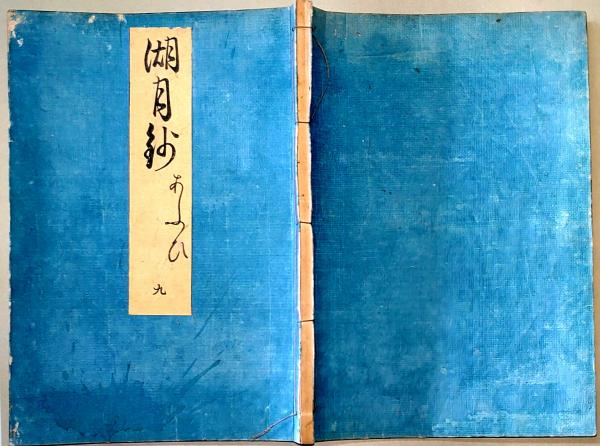 湖月鈔 あふひ 九